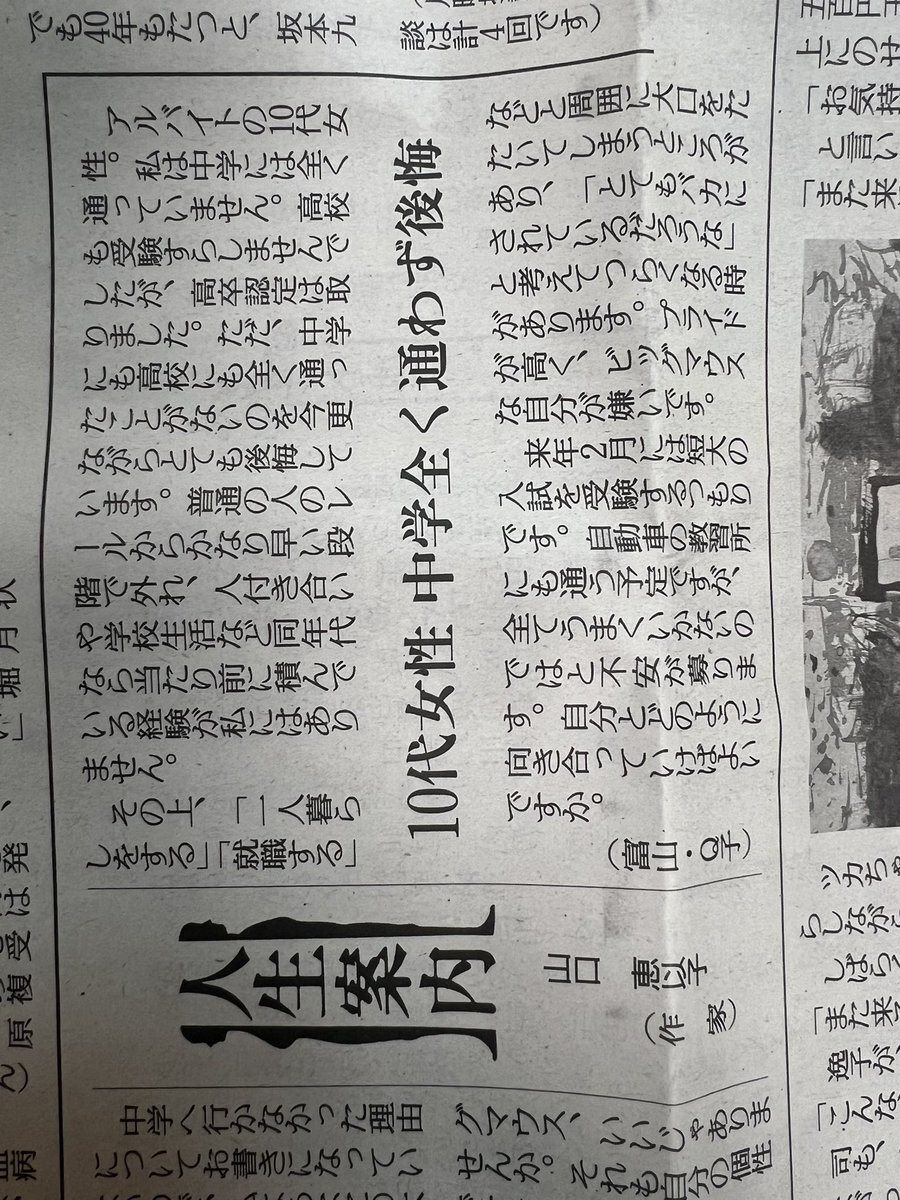 でも40年もたつと、坂本九
談は計4回です)
人生案内
山口 恵以子
(作家)
10代女性 中学全く通わず後悔
アルバイトの10代女
性。私は中学には全く
通っていません。高校
も受験すらしませんで
したが、高卒認定は取
りました。ただ、中学
にも高校にも全く通っ
たことがないのを今更
ながらとても後悔して
います。普通の人のレ
ールからかなり早い段
階で外れ、人付き合い
や学校生活など同年代
なら当たり前に積んで
いる経験が私にはあり
ません。
その上、「一人暮ら
しをする」「就職する」
などと周囲に大口をた
たいてしまうところが
あり、「とてもバカに
されているだろうな」
と考えてつらくなる時
があります。プライド
が高く、ビッグマウス
な自分が嫌いです。
来年2月には短大の
入試を受験するつもり
です。自動車の教習所
にも通う予定ですが、
全てうまくいかないの
ではと不安が募りま
す。自分とどのように
向き合っていけばよい
ですか。
(富山・Q子)
中学へ行かなかった理由
についてお書きになってい
グマウス、いいじゃありま
せんか。それも自分の個性
上にのせ
「お気持
と言い
「また来
ツカちゃ
らしながら
しばらく
「また来て
逸子が、
「こんな
司も、